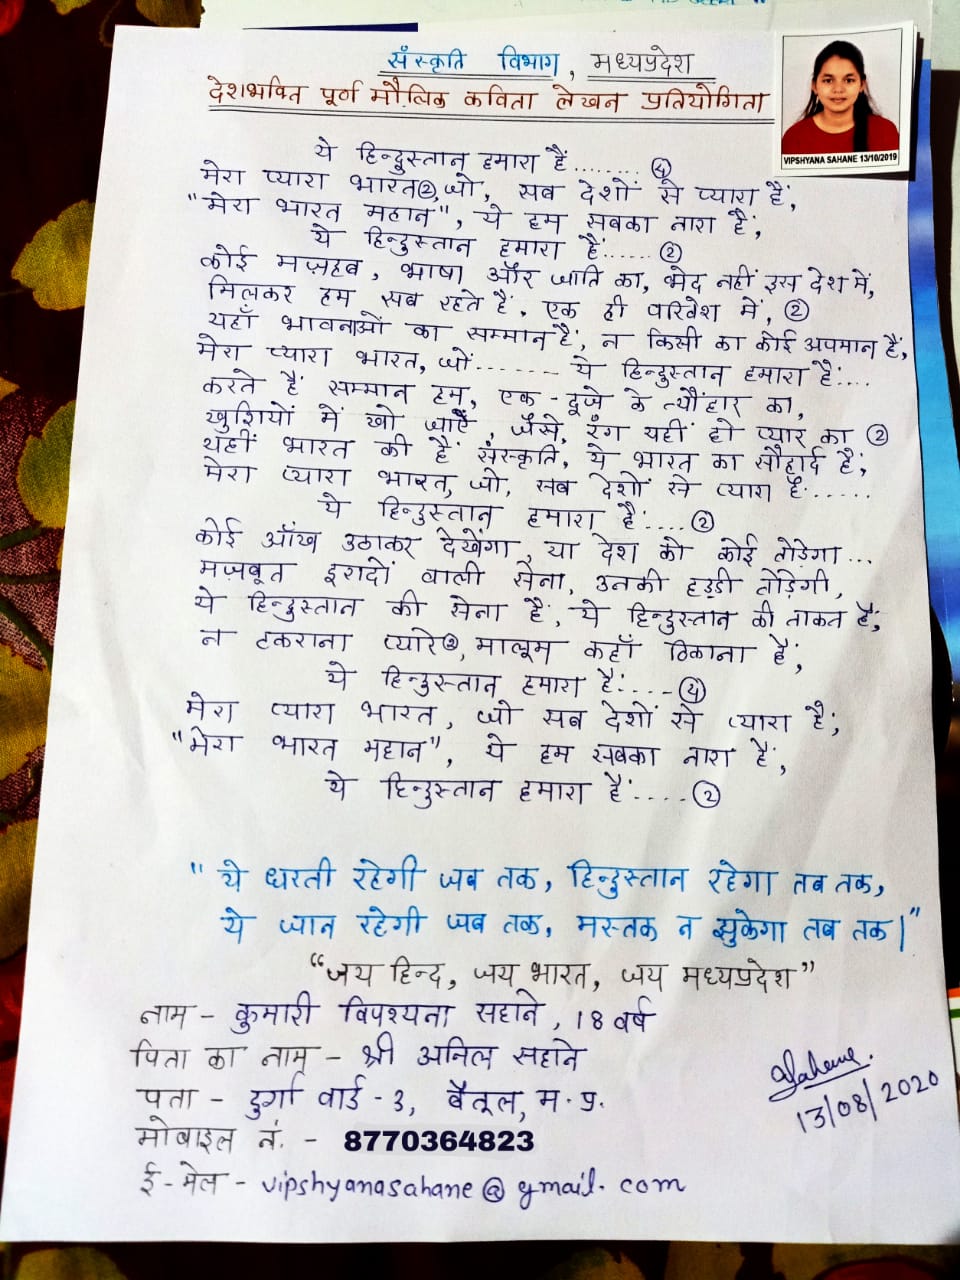 सँस्कृति विभाग, मध्यप्रदेश
देशभक्ति पूर्ण मौलिक कविता लेखन प्रतियोगिता
VIPSHYANA SAHANE 13/10/2019
ये हिन्दुस्तान हमारा हैं........ ④
मेरा प्यारा भारत②, जो, सब देशों से प्यारा हैं,
"मेरा भारत महान", ये हम सबका नारा हैं,
ये हिन्दुस्तान हमारा हैं...... ②
कोई मज़हब, भाषा और जाति का, भेद नहीं इस देश में,
मिलकर हम सब रहते हैं, एक ही परिवेश में, ②
यहाँ भावनाओं का सम्मान हैं, न किसी का कोई अपमान हैं,
मेरा प्यारा भारत, जो....... ये हिन्दुस्तान हमारा हैं....
करते हैं सम्मान हम, एक-दूजे के त्यौंहार का,
खुशियों में खो जाएँ, जैसे, रँग यहीं हो प्यार का ②
यहीं भारत की हैं सँस्कृति, ये भारत का सौहार्द हैं,
मेरा प्यारा भारत, जो, सब देशों से प्यारा हैं......
ये हिन्दुस्तान हमारा हैं.... ②
कोई आँख उठाकर देखेंगा, या देश को कोई तोड़ेगा...
मज़बूत इरादों वाली सेना, उनकी हड्डी तोड़ेगी,
ये हिन्दुस्तान की सेना हैं, ये हिन्दुस्तान की ताकत हैं,
न टकराना प्यारे②, मालूम कहाँ ठिकाना हैं,
ये हिन्दुस्तान हमारा हैं.... ④
मेरा प्यारा भारत, जो सब देशों से प्यारा हैं,
"मेरा भारत महान", ये हम सबका नारा हैं,
ये हिन्दुस्तान हमारा हैं..... ②
"ये धरती रहेगी जब तक, हिन्दुस्तान रहेगा तब तक,
ये जान रहेगी जब तक, मस्तक न झुकेगा तब तक।"
"जय हिन्द, जय भारत, जय मध्यप्रदेश"
नाम - कुमारी विपश्यना सहाने, 18 वर्ष
पिता का नाम - श्री अनिल सहाने
पता - दुर्गा वार्ड - 3, बैतूल, म. प्र.
मोबाइल नं. - 8770364823
ई-मेल - vipshyanasahane@gmail.com
Sahane.
13/08/2020